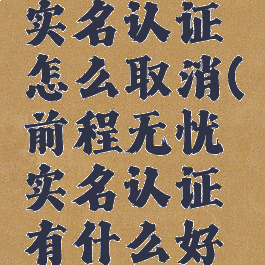 实名认证
怎么取消(
前程无忧
实名认证
有什么好